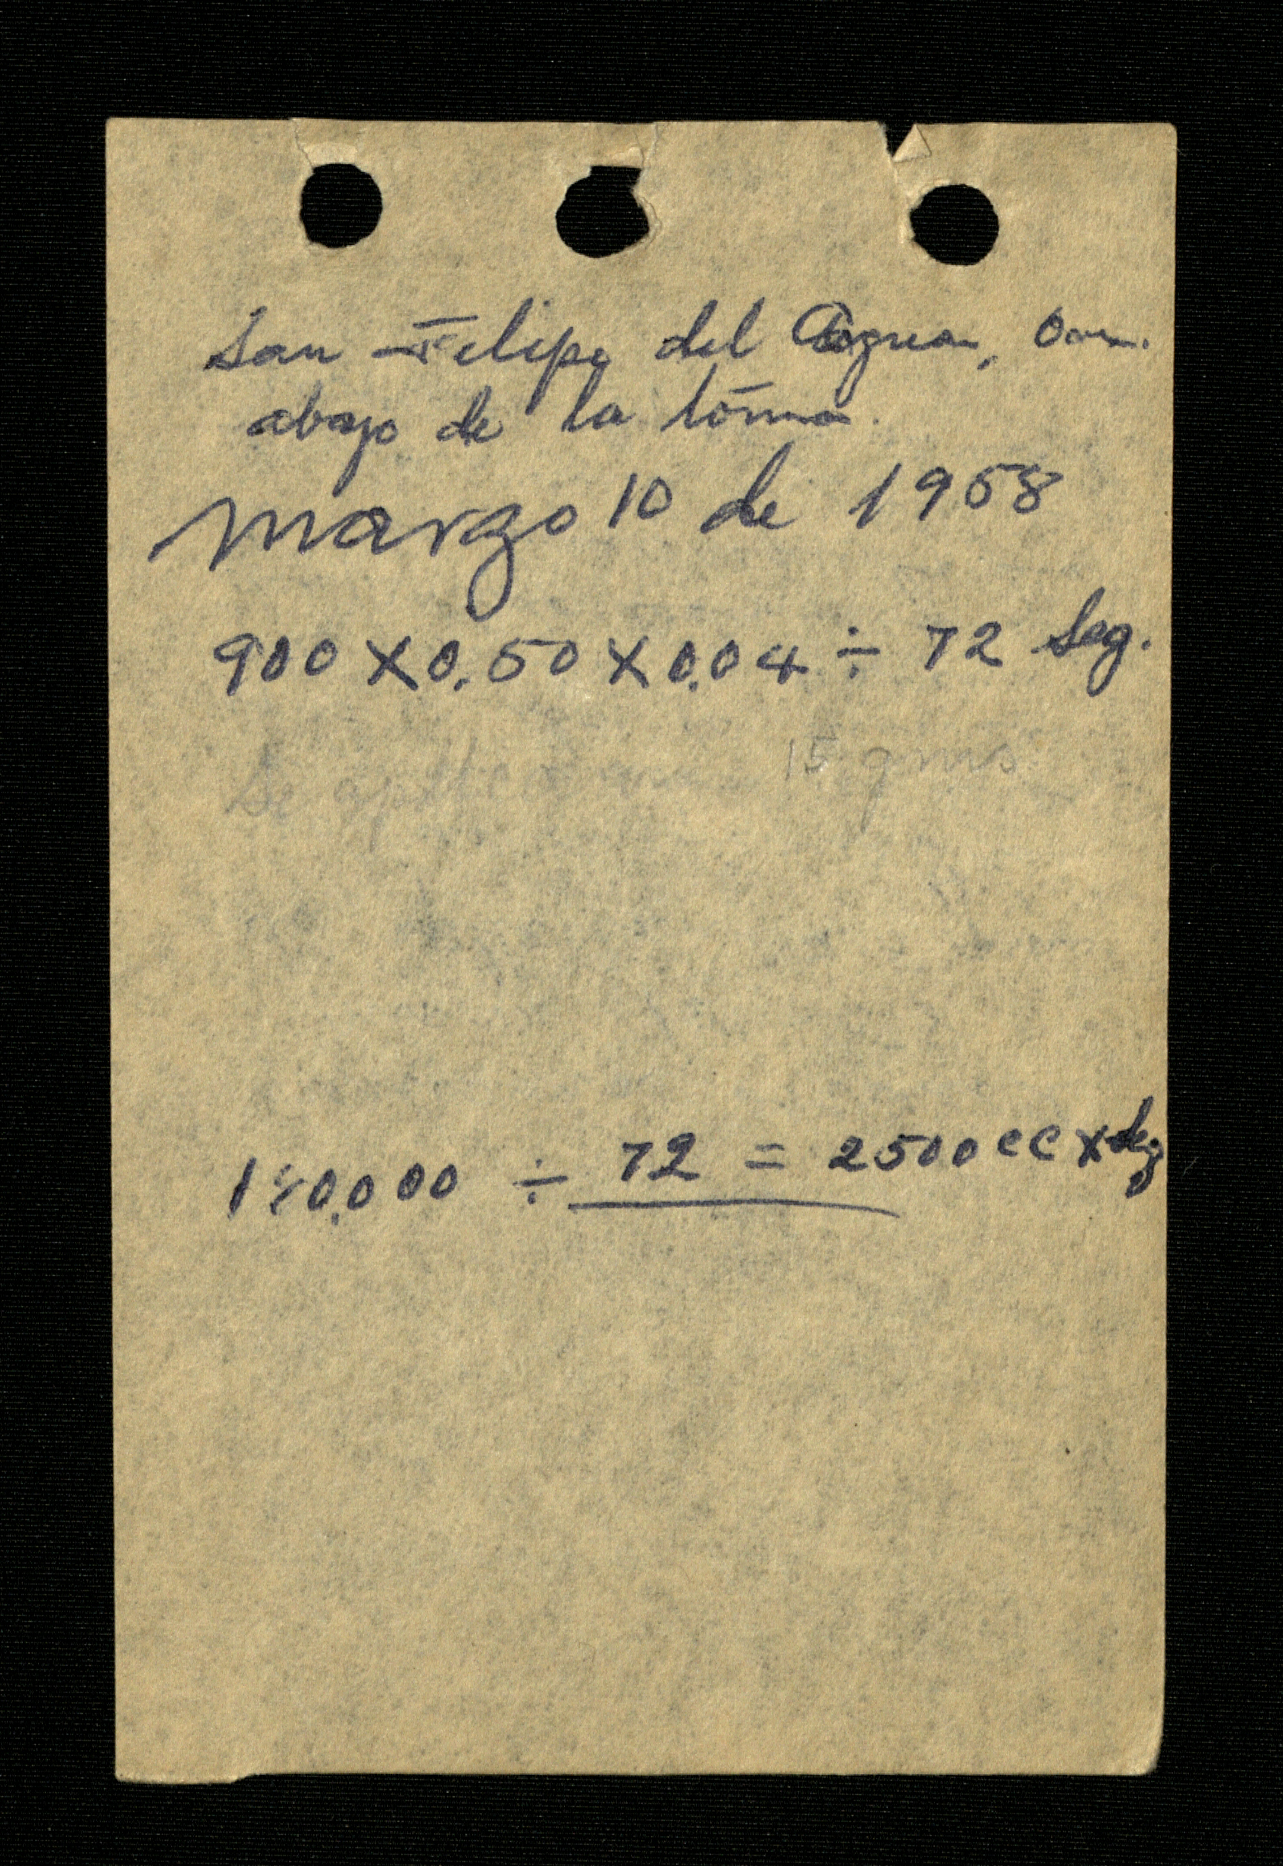 San Felipe del Agua, Oax.
abajo de la tóma.
Marzo 10 de 1958
900 X 0.50 X 0.04 ÷ 72 Seg.
Se 15 gms.
180,000 ÷ 72 = 2500 cc x seg